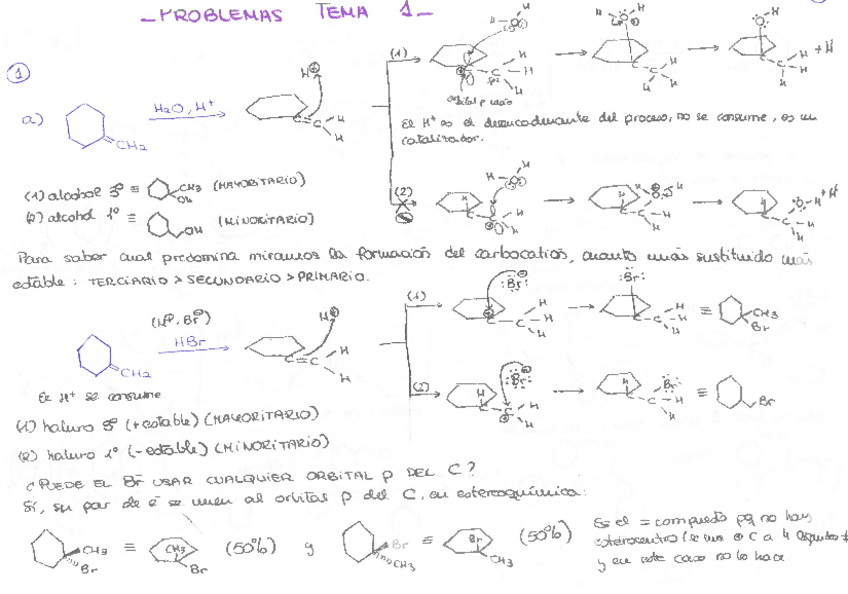 PROBLEMAS TEMA 1
1
a)
CH2
H2O, H+
H⊕
C=C
H
H
(1)
orbital p vacío
El H+ es el desencadenante del proceso, no se consume, es un
catalizador.
(1) alcohol 3º ≡ CH3 OH (MAYORITARIO)
(2) alcohol 1º ≡ OH (MINORITARIO)
(2)
Para saber cual predomina miramos la formación del carbocatión, cuanto más sustituido más
estable: TERCIARIO > SECUNDARIO > PRIMARIO.
(H⊕, Br⊖)
HBr
CH2
H⊕
(1)
:Br:
≡ CH3 Br
El H+ se consume
(2)
:Br:
≡ Br
(1) haluro 3º (+ estable) (MAYORITARIO)
(2) haluro 1º (- estable) (MINORITARIO)
¿PUEDE EL Br- USAR CUALQUIER ORBITAL P DEL C?
Sí, su par de e- se unen al orbital p del C, en estereoquímica:
CH3 Br ≡ CH3 Br (50%) y Br CH3 ≡ Br CH3 (50%)
Es el = compuesto pq no hay
estereocentro (se une C a 4
y en este caso no lo hace